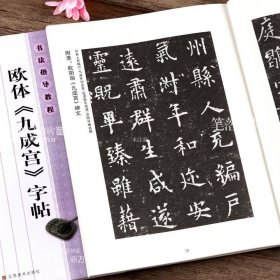 书法指导教程
欧体《九成宫》字帖
江苏美术出版社
附录：欧阳询《九成宫》碑文
州縣人充編戶
氣淑年和迩安
遠肅群生咸遂
靈貺畢臻雖藉